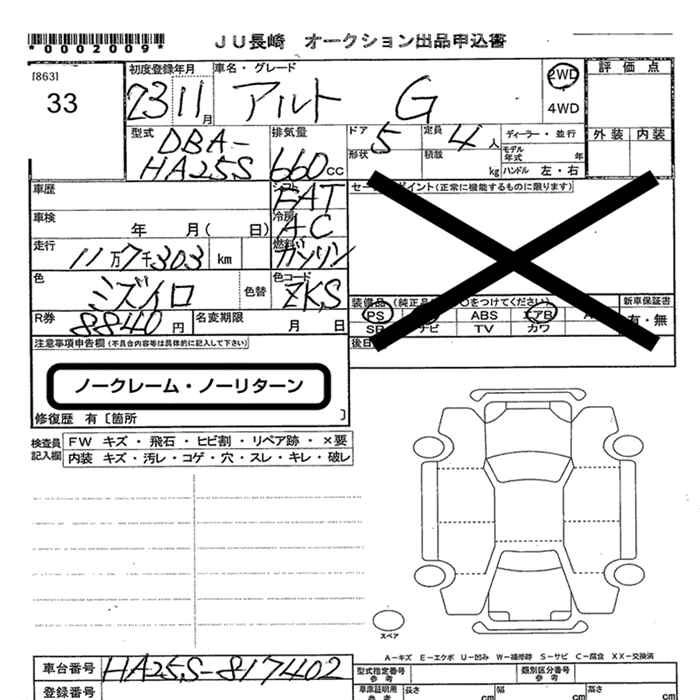 *0002009*
JU長崎 オークション出品申込書
[863]
33
初度登録年月
23 11月
車名・グレード
アルト G
2WD
4WD
評価点
外装 内装
型式
DBA-
HA25S
排気量
660cc
ドア 5
形状
定員 4人
積載 kg
ディーラー・並行
モデル年式 年
ハンドル 左・右
車歴
シフト FAT
車検 年 月( 日)
冷房 AC
走行 11万7千303 km
燃料 ガソリン
色 ミズイロ
色替
色コード ZKS
R券 8840円
名変期限 月 日
セールスポイント(正常に機能するものに限ります)
装備品 (純正品 〇をつけてください)
新車保証書
有・無
PS
ABS
エアB
SR
ナビ
TV
カワ
後日
注意事項申告欄(不具合内容等は具体的に記入して下さい)
ノークレーム・ノーリターン
修復歴 有〔箇所 〕
検査員記入欄
FW キズ・飛石・ヒビ割・リペア跡・×要
内装 キズ・汚レ・コゲ・穴・スレ・キレ・破レ
スペア
A-キズ E-エクボ U-凹み W-補修跡 S-サビ C-腐食 XX-交換済
車台番号 HA25S-817402
登録番号
型式指定番号 参考
類別区分番号 参考
車庫証明用 参考
長さ cm
幅 cm
高さ cm